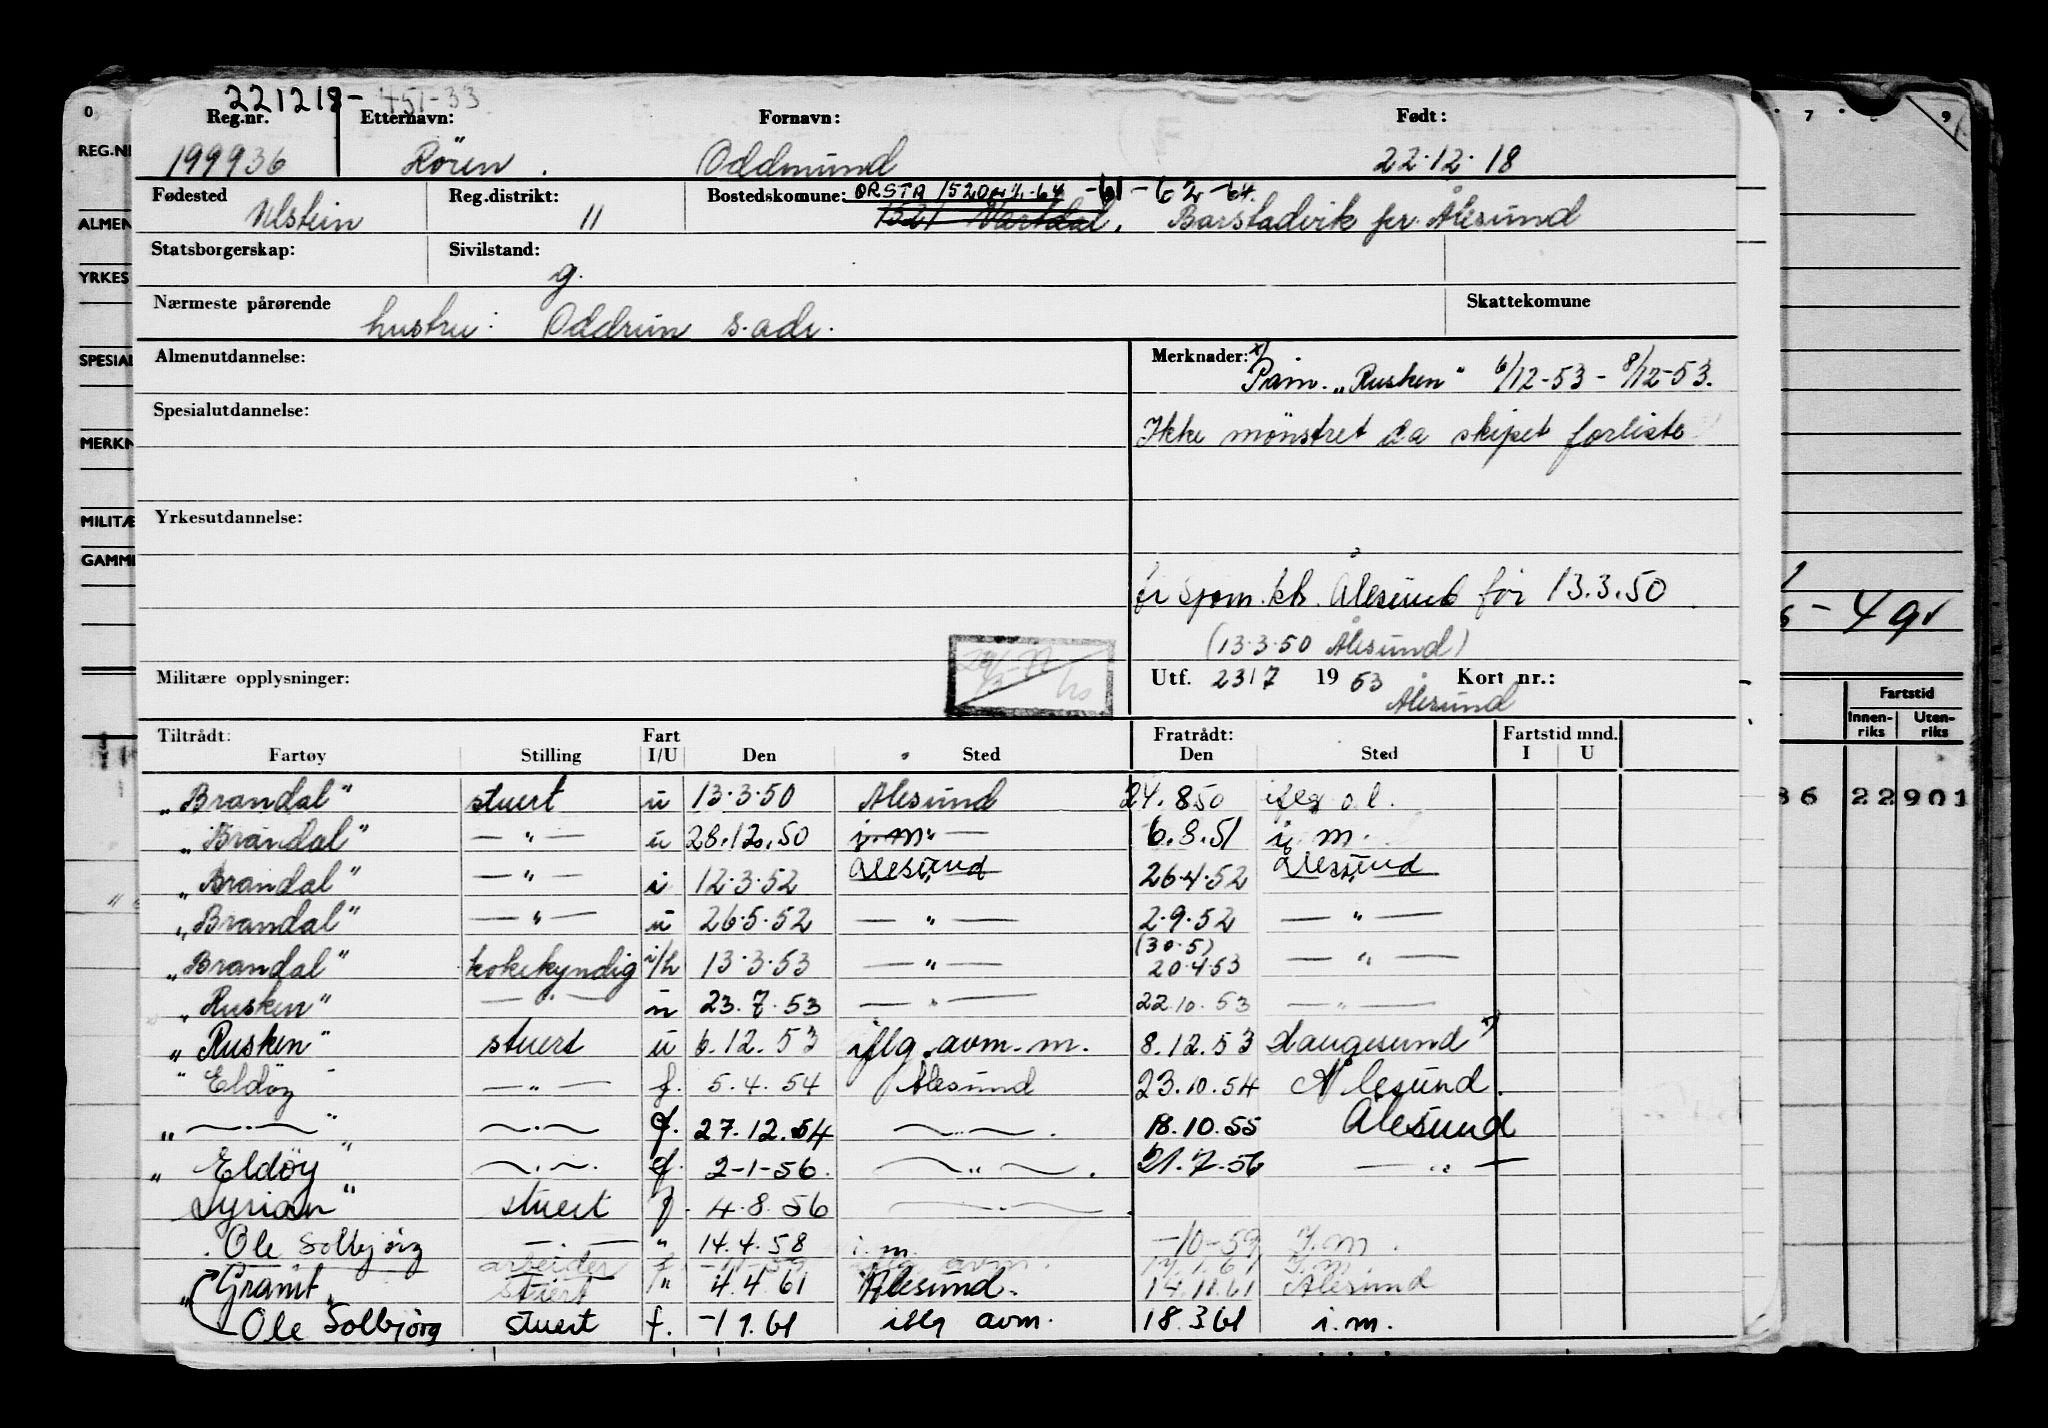 221218- 451-33
Reg.nr. Etternavn: Fornavn: Født:
199936 Rören. Oddmund 22.12.18
Fødested Reg.distrikt: Bostedskomune: ØRSTA 1520 -64 -61-62-64.
Ulstein 11 1521 Vartdal. Barstadvik pr. Ålesund
Statsborgerskap: Sivilstand:
g.
Nærmeste pårørende Skattekomune
hustru: Oddrun s. adr.
Almenutdannelse: Merknader: x)
Påm. "Rusken" 6/12-53 - 8/12-53.
Spesialutdannelse:
Ikke mönstret da skipet forliste
Yrkesutdannelse:
fr Sjøm.ktr. Ålesund för 13.3.50
(13.3.50 Ålesund)
Militære opplysninger: Utf. 23/7 1953 Kort nr.:
Ålesund
Tiltrådt: Fart Fratrådt: Fartstid mnd.
Fartøy Stilling I/U Den Sted Den Sted I U
"Brandal" stuert u 13.3.50 Ålesund 24.8.50 iflg o.l.
"Brandal" — " — u 28.12.50 i.m. 6.8.51 i. m.
"Brandal" — " — i 12.3.52 Ålesund 26.4.52 Ålesund
"Brandal" — " — u 26.5.52 — " — 2.9.52 — " —
(30.5)
"Brandal" kokekyndig i/h 13.3.53 — " — 20.4.53 — " —
"Rusken" — " — u 23.7.53 — " — 22.10.53 — " —
"Rusken" stuert u 6.12.53 iflg. avm. m. 8.12.53 Haugesund x)
"Eldöy" — " — f. 5.4.54 Ålesund 23.10.54 Ålesund.
" — . — " — . — f. 27.12.54 — . — . 18.10.55 Ålesund
"Eldöy" — . — . f. 2-1-56. — " — . 21.7.56 — " —
Syrian" stuert f. 4.8.56 — . —
. Ole Solbjörg — . — " 14.4.58 i. m. -10-59 I.m.
arbeider f. iflg avm. I.m
"Gramt" stuert " 4.4.61 Ålesund. 14.11.61 Ålesund
Ole Solbjörg stuert f. -1 1.61 iflg avm. 18.3.61 i.m.
0
REG.N
ALMEN
YRKES
SPESIAL
MERK
MILITÆ
GAMM
7 9
- 4 gr
Fartstid
Innen-riks Uten-riks
86 22901